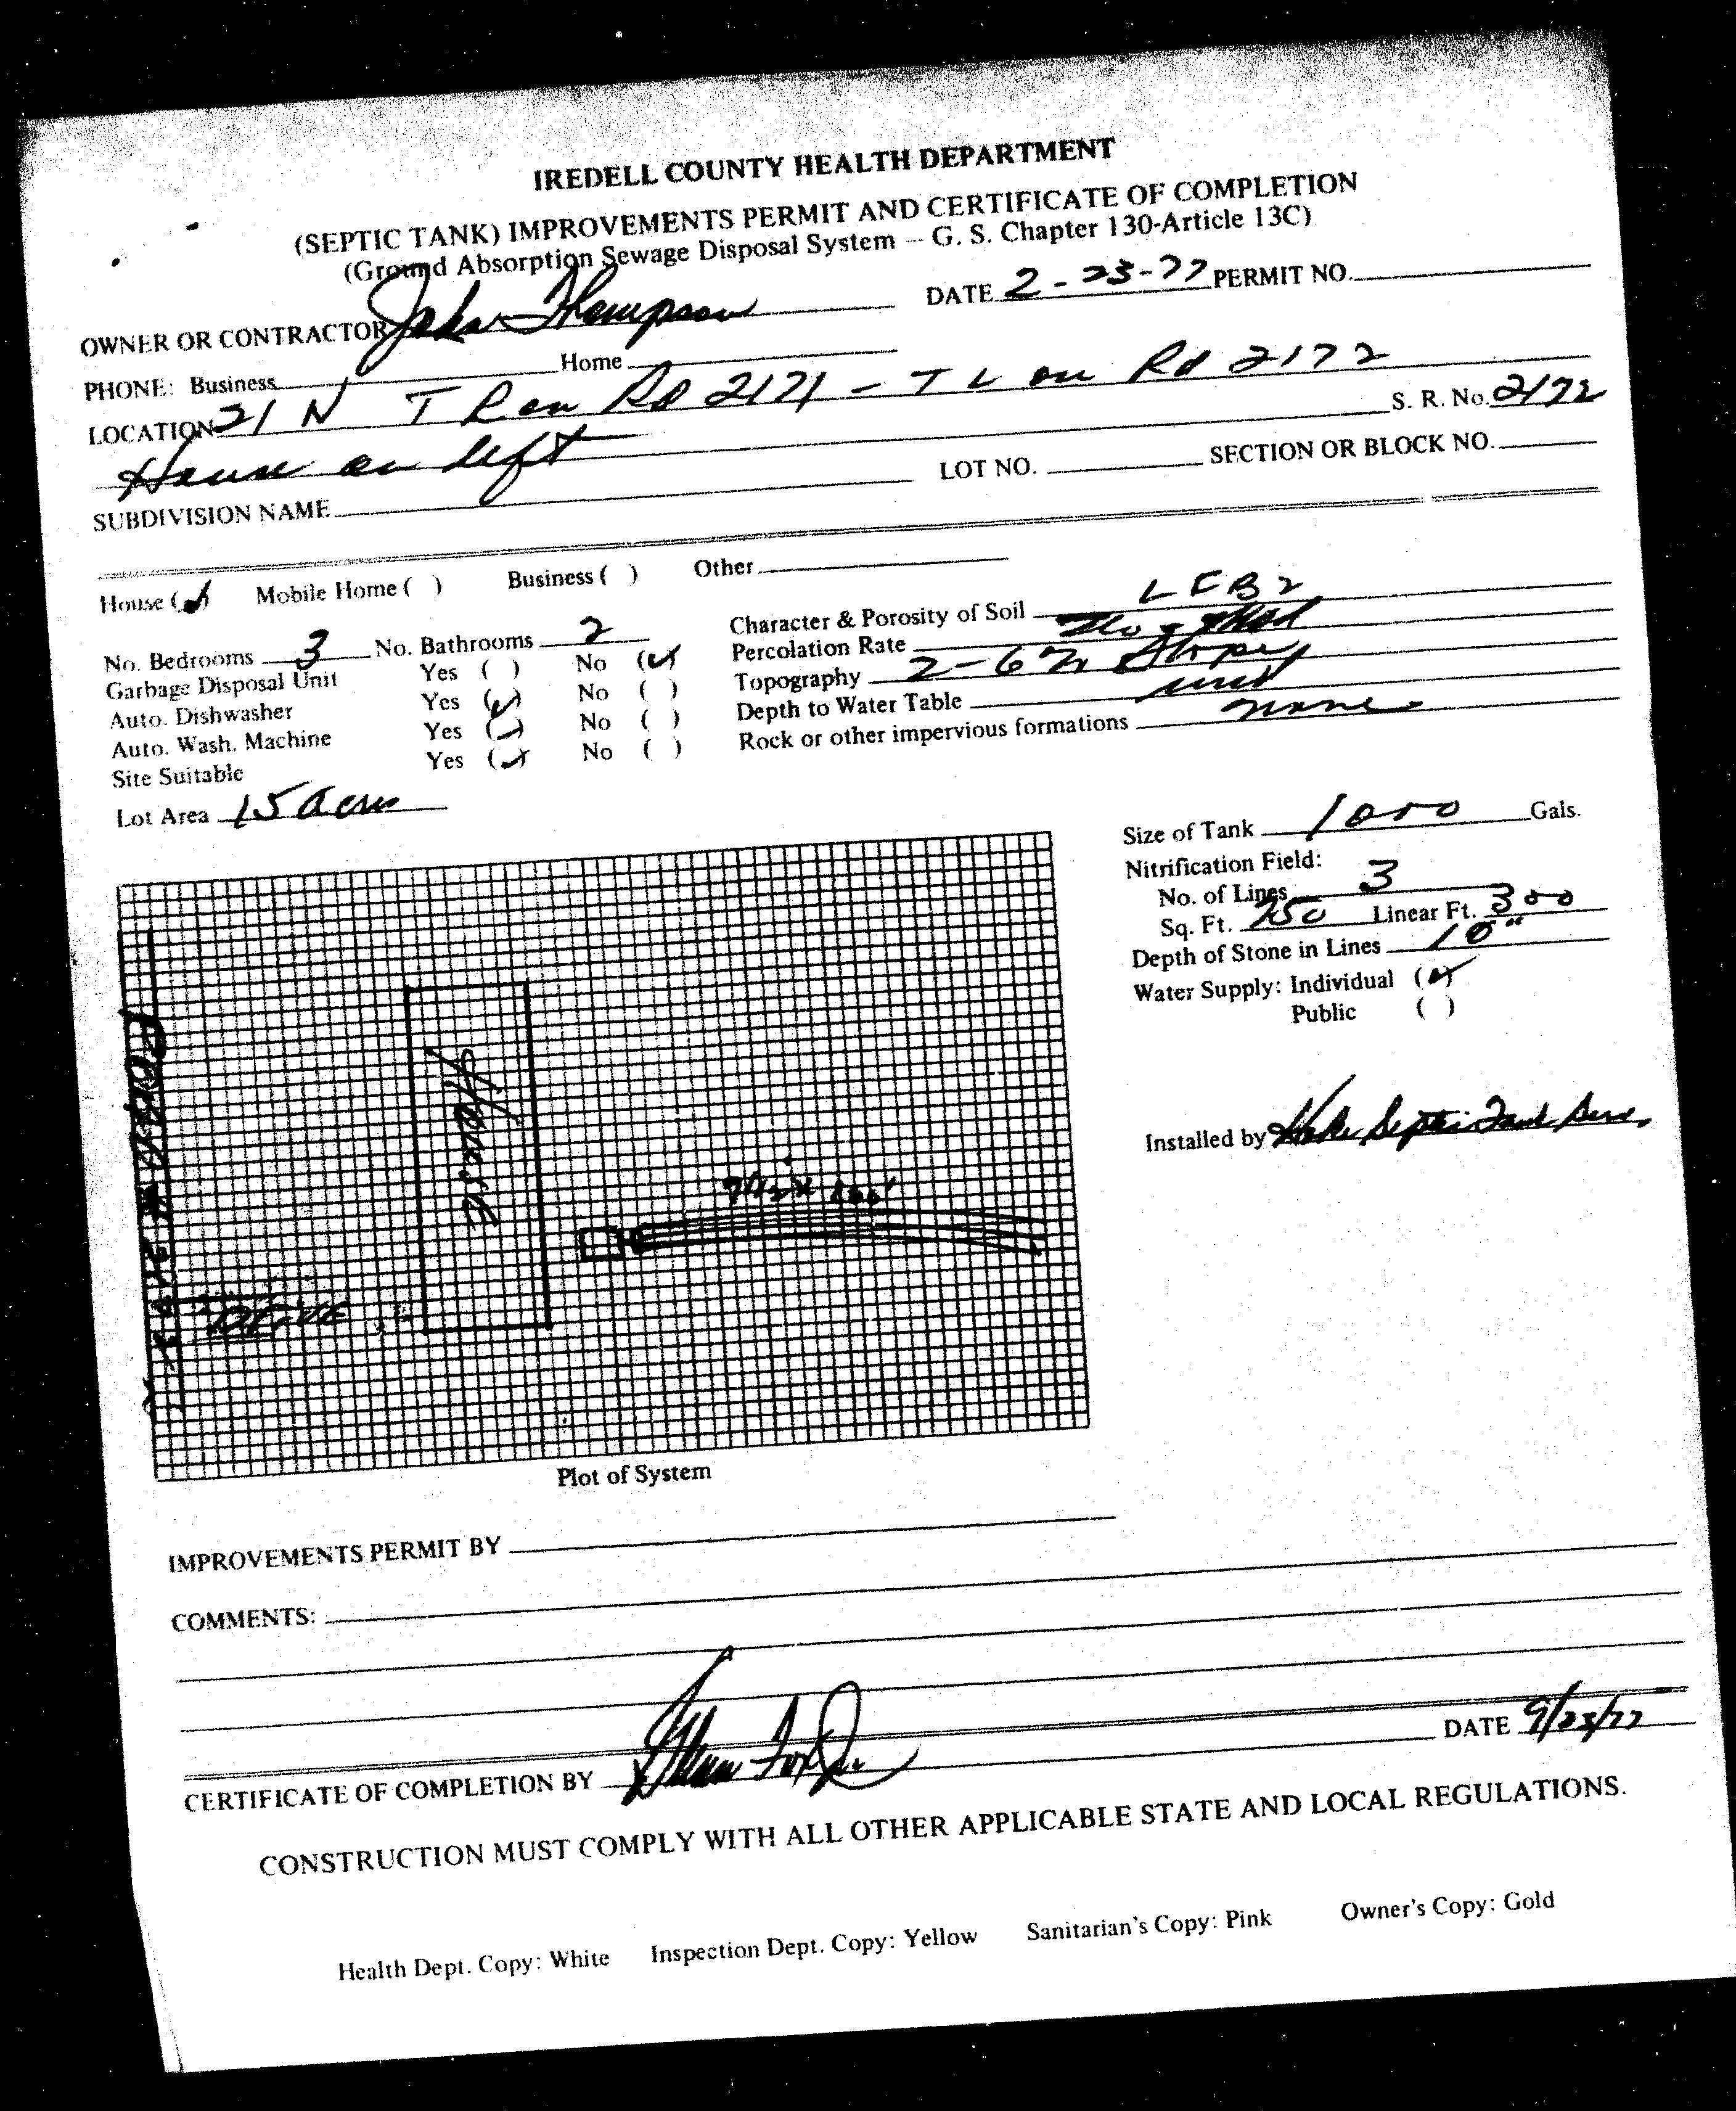 IREDELL COUNTY HEALTH DEPARTMENT
(SEPTIC TANK) IMPROVEMENTS PERMIT AND CERTIFICATE OF COMPLETION
(Ground Absorption Sewage Disposal System -- G. S. Chapter 130-Article 13C)
OWNER OR CONTRACTOR John Thompson DATE 2-23-77 PERMIT NO.
PHONE: Business Home
LOCATION 21 N T R on Rd 2171 - T L on Rd 2172
House on left S. R. No. 2172
SUBDIVISION NAME LOT NO. SECTION OR BLOCK NO.
House (✓) Mobile Home ( ) Business ( ) Other
No. Bedrooms 3 No. Bathrooms 2
Garbage Disposal Unit Yes ( ) No (✓)
Auto. Dishwasher Yes (✓) No ( )
Auto. Wash. Machine Yes (✓) No ( )
Site Suitable Yes (✓) No ( )
Lot Area 15 Acres
Character & Porosity of Soil
Percolation Rate
Topography 2-6% Slope
Depth to Water Table
Rock or other impervious formations none
Size of Tank 1000 Gals.
Nitrification Field:
No. of Lines 3
Sq. Ft. 750 Linear Ft. 300
Depth of Stone in Lines 10"
Water Supply: Individual (✓)
Public ( )
Installed by Septic Tank Serv.
House
Drive
Plot of System
IMPROVEMENTS PERMIT BY
COMMENTS:
CERTIFICATE OF COMPLETION BY DATE 9/23/77
CONSTRUCTION MUST COMPLY WITH ALL OTHER APPLICABLE STATE AND LOCAL REGULATIONS.
Health Dept. Copy: White Inspection Dept. Copy: Yellow Sanitarian's Copy: Pink Owner's Copy: Gold